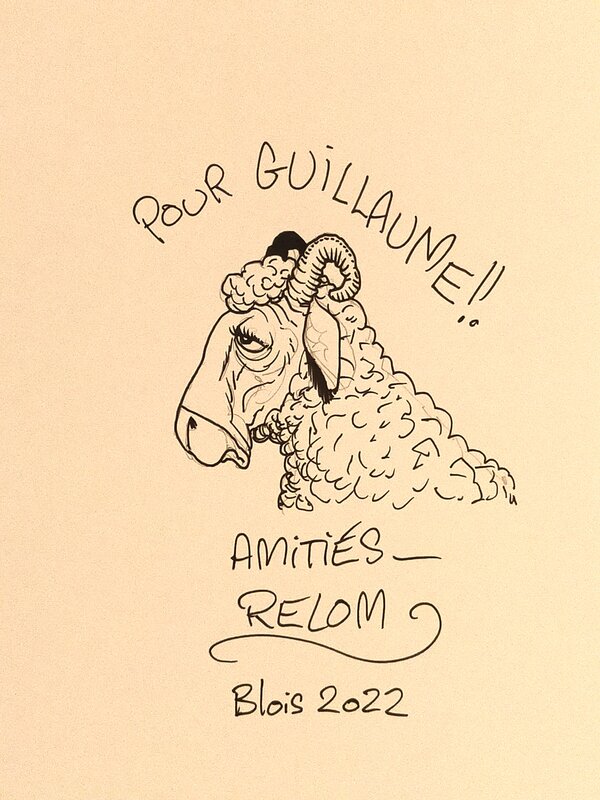 POUR GUILLAUME!!
AMITIÉS_
RELOM
Blois 2022